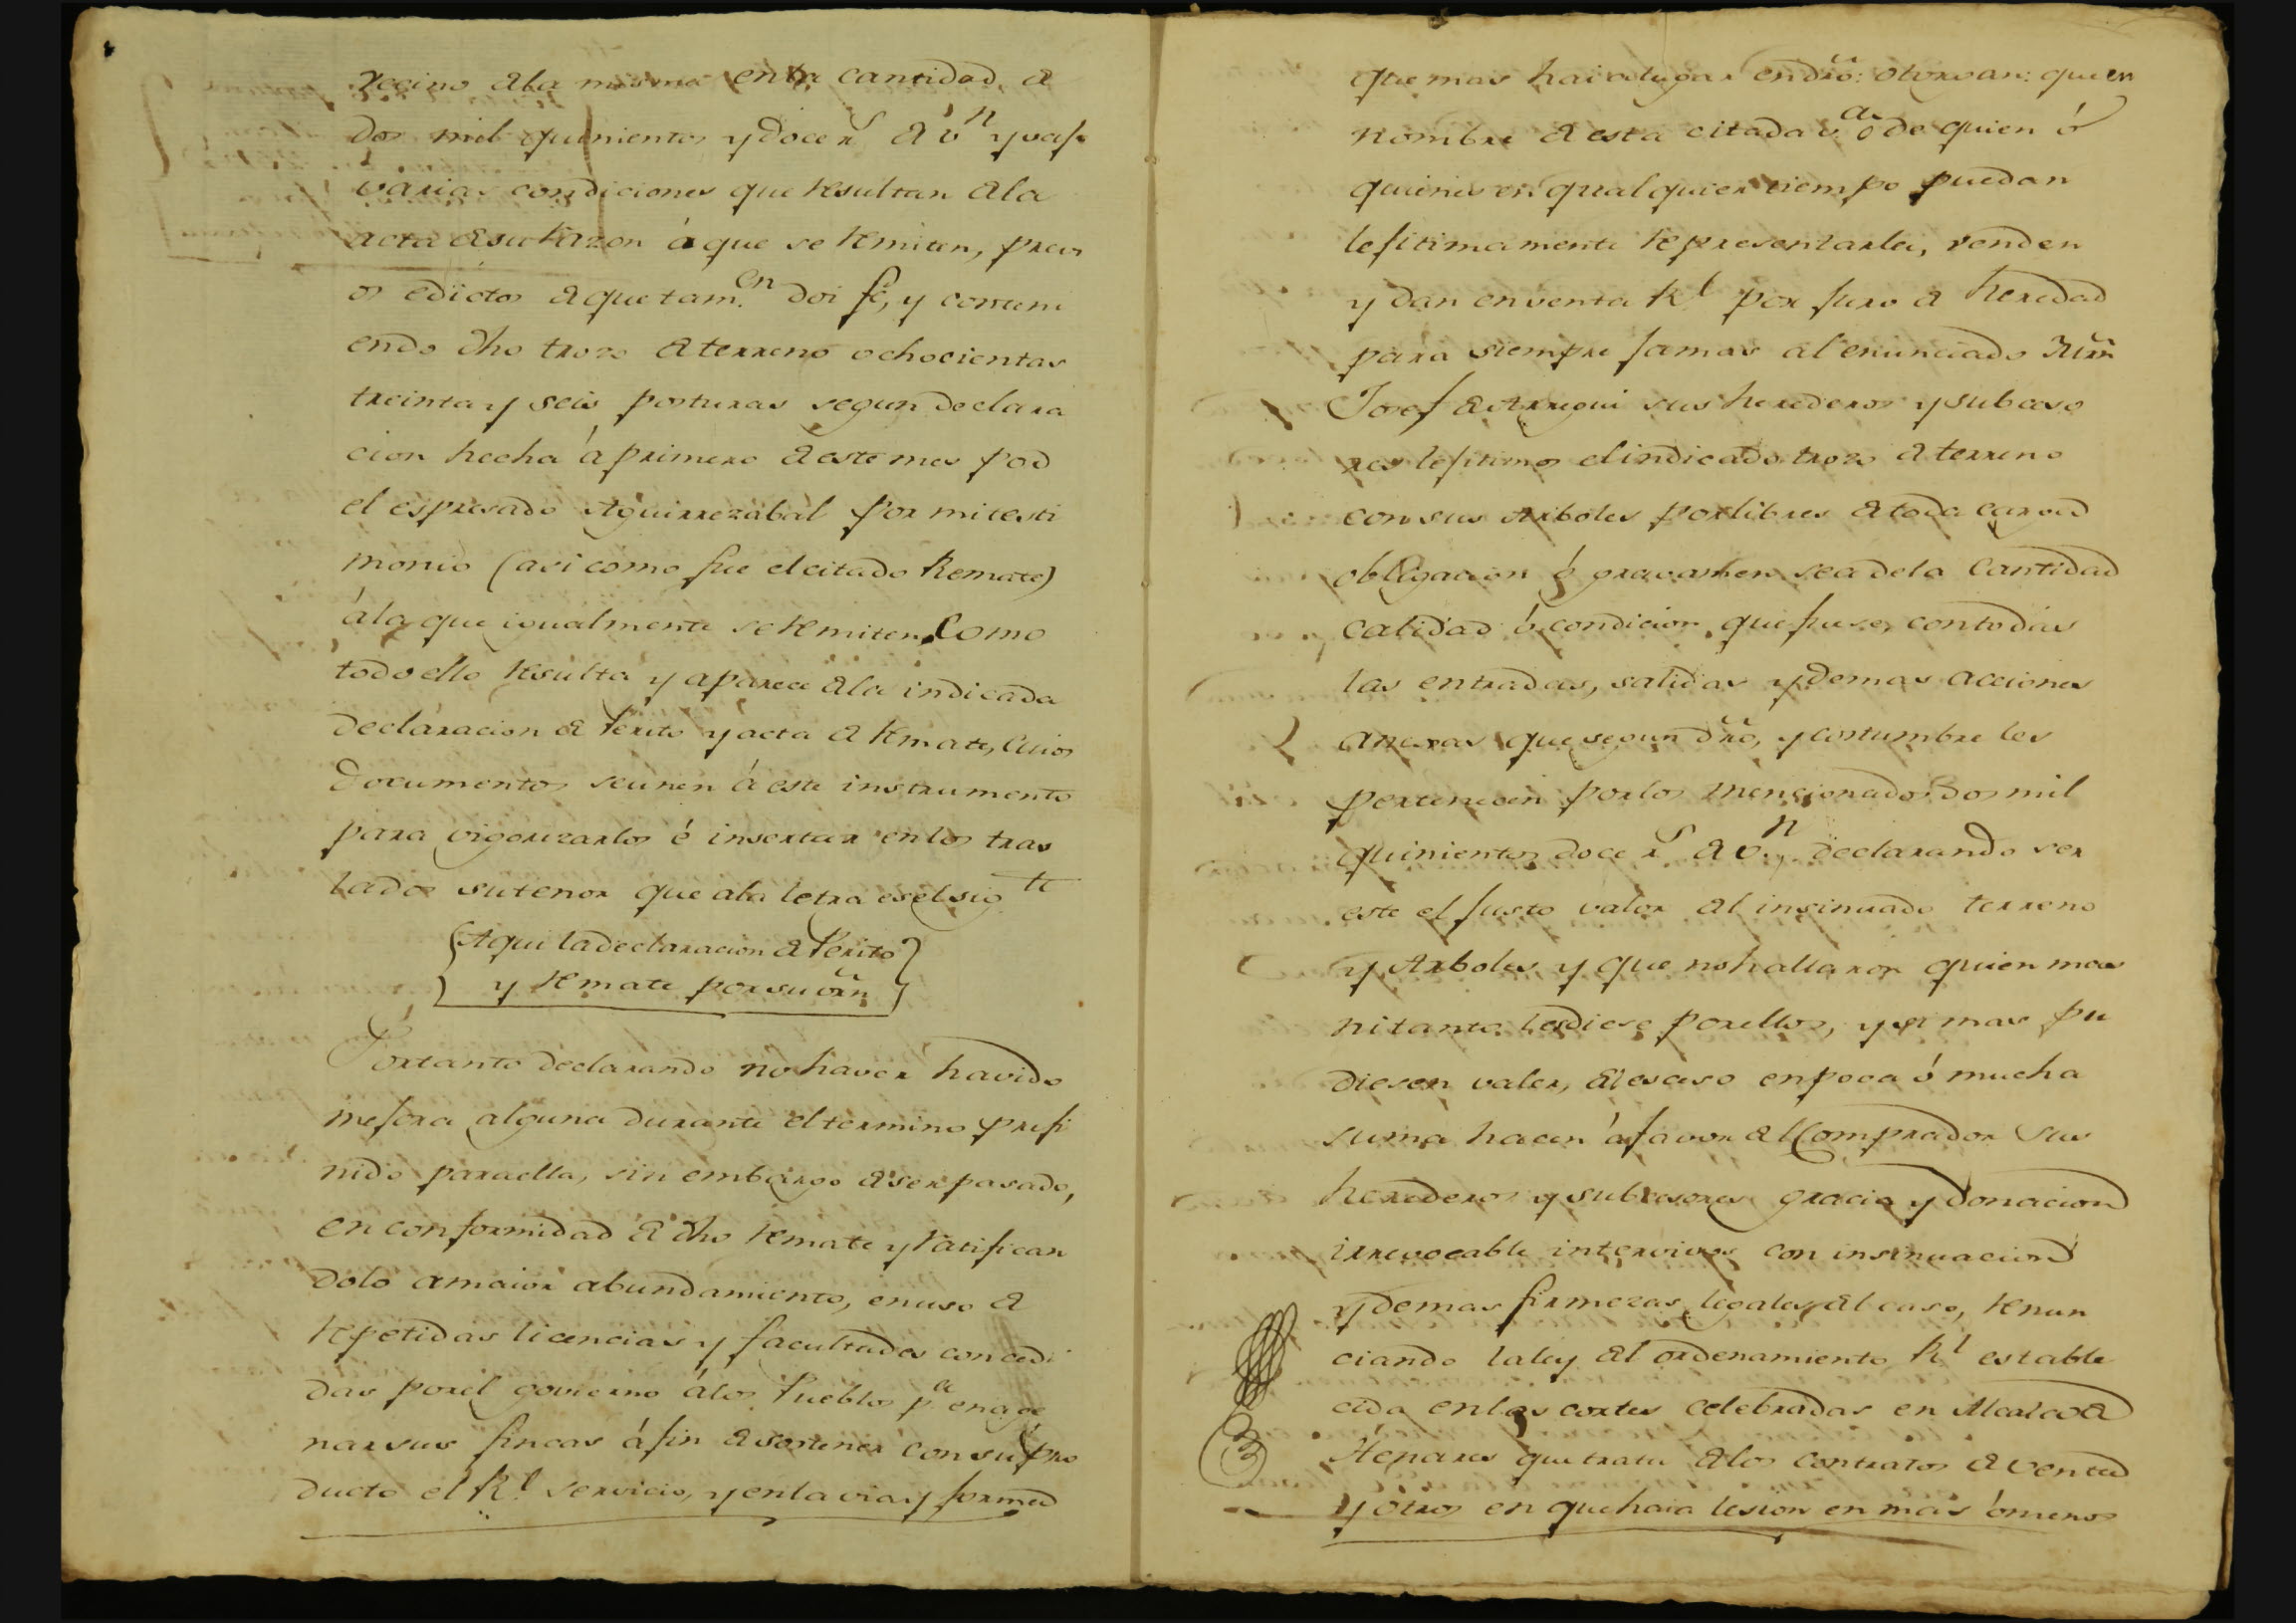 vecino de la misma en la cantidad de
dos mil quinientos y doce rs de vn y vajo
varias condiciones que resultan de la
acta de su razon á que se remiten, previ
os edictos de que tamen doi fé, y contení
endo dho trozo de terreno ochocientas
treinta y seis posturas segun declara
cion hecha á primero de este mes por
el espresado Aguirrezabal por mi testi
monio (asi como fue el citado Remate)
á la que igualmente se remiten. Como
todo ello resulta y aparece de la indicada
declaracion de Perito y acta de remate, cuios
documentos se unen á este instrumento
para vigorizarlos é insertar en los tras
lados su tenor que a la letra es el sigte
(Aqui la declaracion de Perito
y remate por su orñ)
Portanto declarando no haver havido
mejora alguna durante el termino prefi
nido para ella, sin embargo de ser pasado,
en conformidad de dho remate y ratifican
dolo a maior abundamiento, en uso de
repetidas licencias y facultades concedi
das por el govierno á los Pueblos pa enage
nar sus fincas á fin de sostener con su pro
ducto el Rl servicio, y en la via y forma
que mas hai a lugar en dro: otorgan: que en
nombre de esta citada va o de quien ó
quienes en qualquier tiempo puedan
lejitimamente representarla, venden
y dan en venta Rl por juro de heredad
para siempre jamas al enunciado Juan
Josef de Arregui sus herederos y subceso
res lejitimos el indicado trozo de terreno
con sus Arboles por libres de toda carga
obligacion ó gravamen sea de la Cantidad
calidad ó condicion que fuese, con todas
las entradas, salidas y demas acciones
anexas que segun dro, y costumbre les
pertenecen por los mencionados dos mil
quinientos doce rs de vn declarando ser
este el justo valor del insinuado terreno
y Arboles y que no hallaron quien mas
ni tanto les diese por ellos, y si mas pu
diesen valer, del esceso en poca ó mucha
suma hacen á favor del Comprador sus
herederos y subcesores gracia y donacion
irrevocable intervivos con insinuacion
y demas firmezas legales del caso, renun
ciando la ley del ordenamiento Rl estable
cida en las cortes celebradas en Alcala de
Henares que trata de los contratos de venta
y otros en que haia lesion en mas ó menos